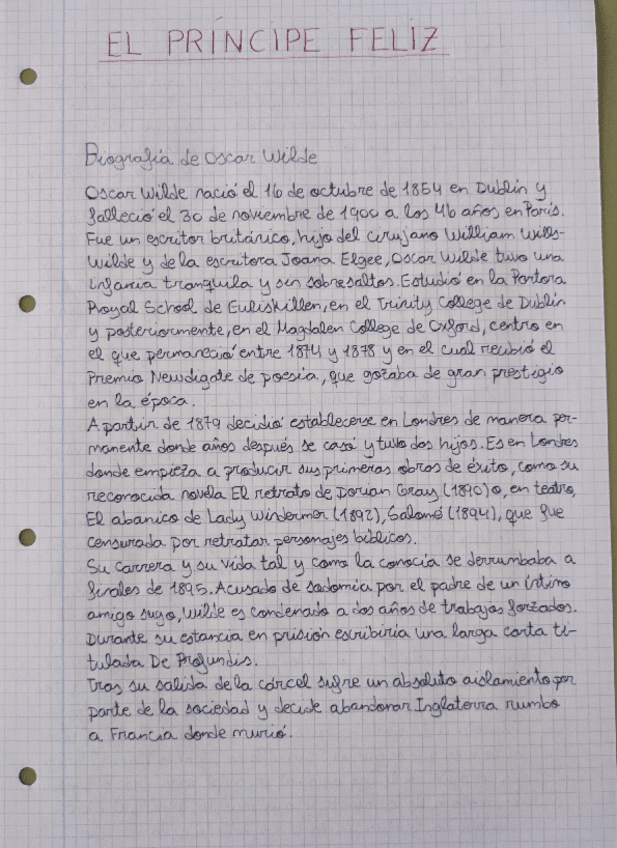 EL PRÍNCIPE FELIZ
Biografía de Oscar Wilde
Oscar Wilde nació el 16 de octubre de 1854 en Dublín y
falleció el 30 de noviembre de 1900 a los 46 años en París.
Fue un escritor británico, hijo del cirujano William Wills-
Wilde y de la escritora Joana Elgee, Oscar Wilde tuvo una
infancia tranquila y sin sobresaltos. Estudió en la Portora
Royal School de Euliskillen, en el Trinity College de Dublín
y posteriormente, en el Magdalen College de Oxford, centro en
el que permaneció entre 1874 y 1878 y en el cual recibió el
Premio Newdigate de poesía, que gozaba de gran prestigio
en la época.
A partir de 1879 decidió establecerse en Londres de manera per-
manente donde años después se casó y tuvo dos hijos. Es en Londres
donde empieza a producir sus primeras obras de éxito, como su
reconocida novela El retrato de Dorian Gray (1890) o, en teatro,
El abanico de Lady Windermer (1892), Salomé (1894), que fue
censurada por retratar personajes bíblicos.
Su carrera y su vida tal y como la conocía se derrumbaba a
finales de 1895. Acusado de sodomía por el padre de un íntimo
amigo suyo, Wilde es condenado a dos años de trabajos forzados.
Durante su estancia en prisión escribiría una larga carta ti-
tulada De Profundis.
Tras su salida de la cárcel sufre un absoluto aislamiento por
parte de la sociedad y decide abandonar Inglaterra rumbo
a Francia donde murió.